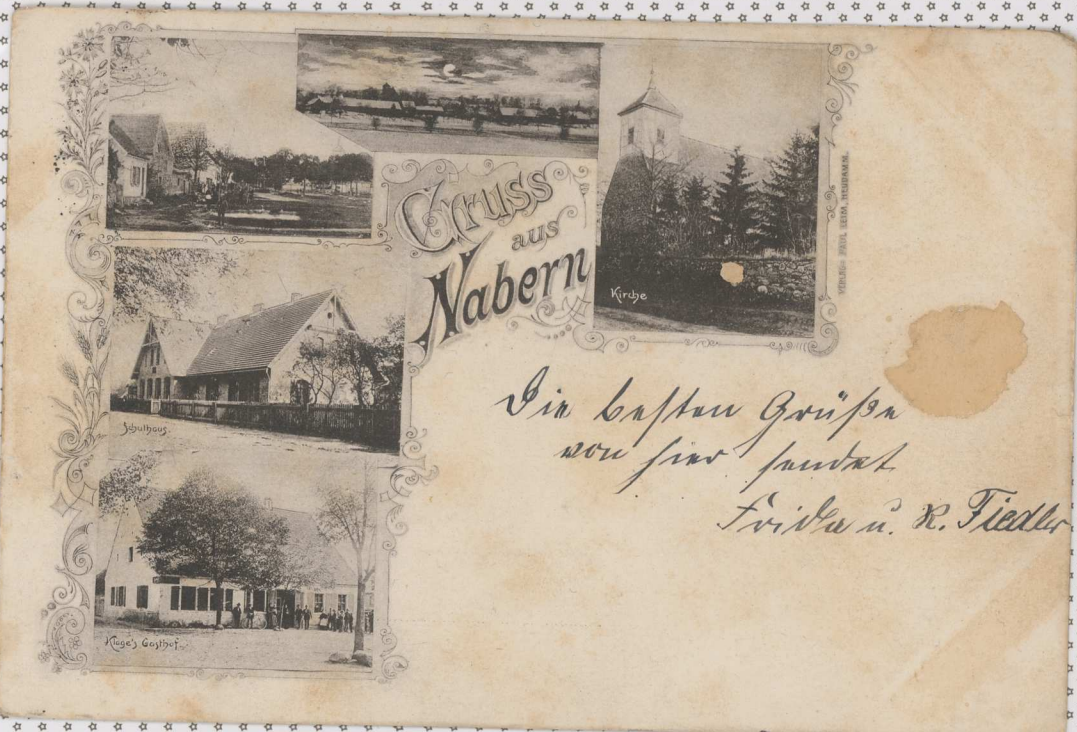 Gruss
aus
Nabern
Kirche
VERLAG: PAUL SEIM, NEUDAMM.
Schulhaus.
Kluge's Gasthof.
Die besten Grüße
von hier sendet
Frida u. R. Fiedler